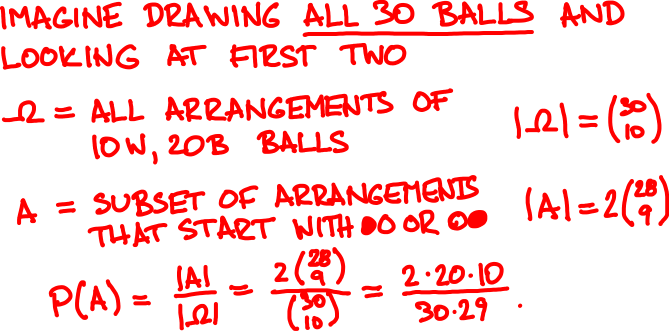 IMAGINE DRAWING ALL 30 BALLS AND
LOOKING AT FIRST TWO
Ω = ALL ARRANGEMENTS OF
10W, 20B BALLS
|Ω| = (30 10)
A = SUBSET OF ARRANGEMENTS
THAT START WITH ●○ OR ○●
|A| = 2(28 9)
P(A) = |A| / |Ω| = 2(28 9) / (30 10) = 2·20·10 / 30·29 .